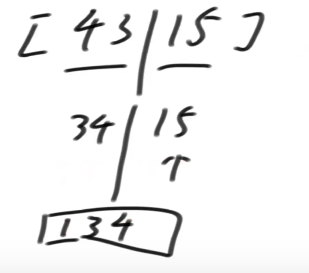 [ 43 | 15 ]
34 | 15
↑
134